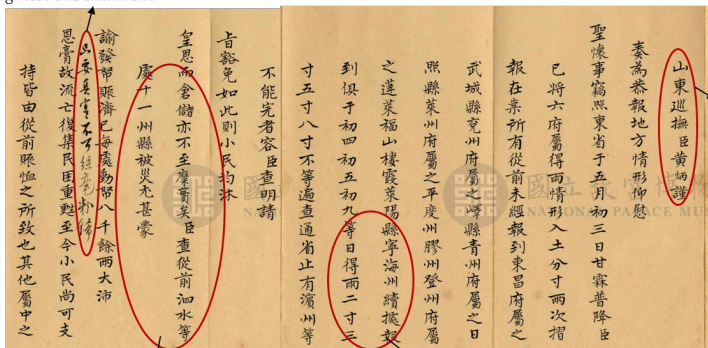 山東巡撫臣黃炳謹
奏為恭報地方情形仰慰
聖懷事竊照東省于五月初三日甘霖普降臣
已將六府屬得雨情形入土分寸兩次摺
報在案所有從前未經報到東昌府屬之
武城縣兗州府屬之嶧縣青州府屬之日
照縣萊州府屬之平度州膠州登州府屬
之蓬萊福山棲霞萊陽縣寧海州續據報
到俱于初四初五初九等日得雨二寸三
寸五寸八寸不等遍查通省止有濱州等
不能完者容臣查明請
旨豁免如此則小民均沐
皇恩而倉儲亦不至糜費矣臣查從前泗水等
處十一州縣被災尤甚蒙
諭發帑賑濟已每處動帑八千餘兩大沛
只要真實不可絲毫粉飾
恩膏故流亡復集民困重甦至今小民尚可支
持皆由從前賑恤之所致也其他屬中之
國立故宮博物
NATIONAL PALACE MUS